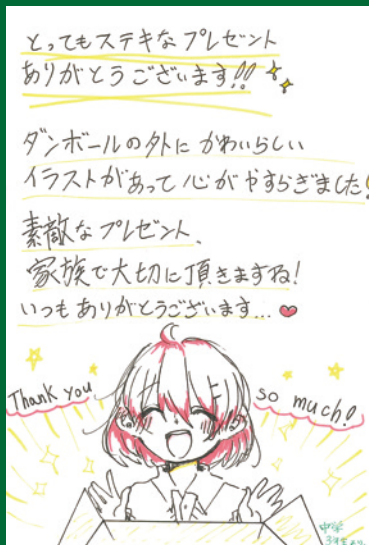 とってもステキなプレゼント
ありがとうございます!!
ダンボールの外にかわいらしい
イラストがあって心がやすらぎました!
素敵なプレゼント、
家族で大切に頂きますね!
いつもありがとうございます...
Thank you
so much!
中学
3年生より